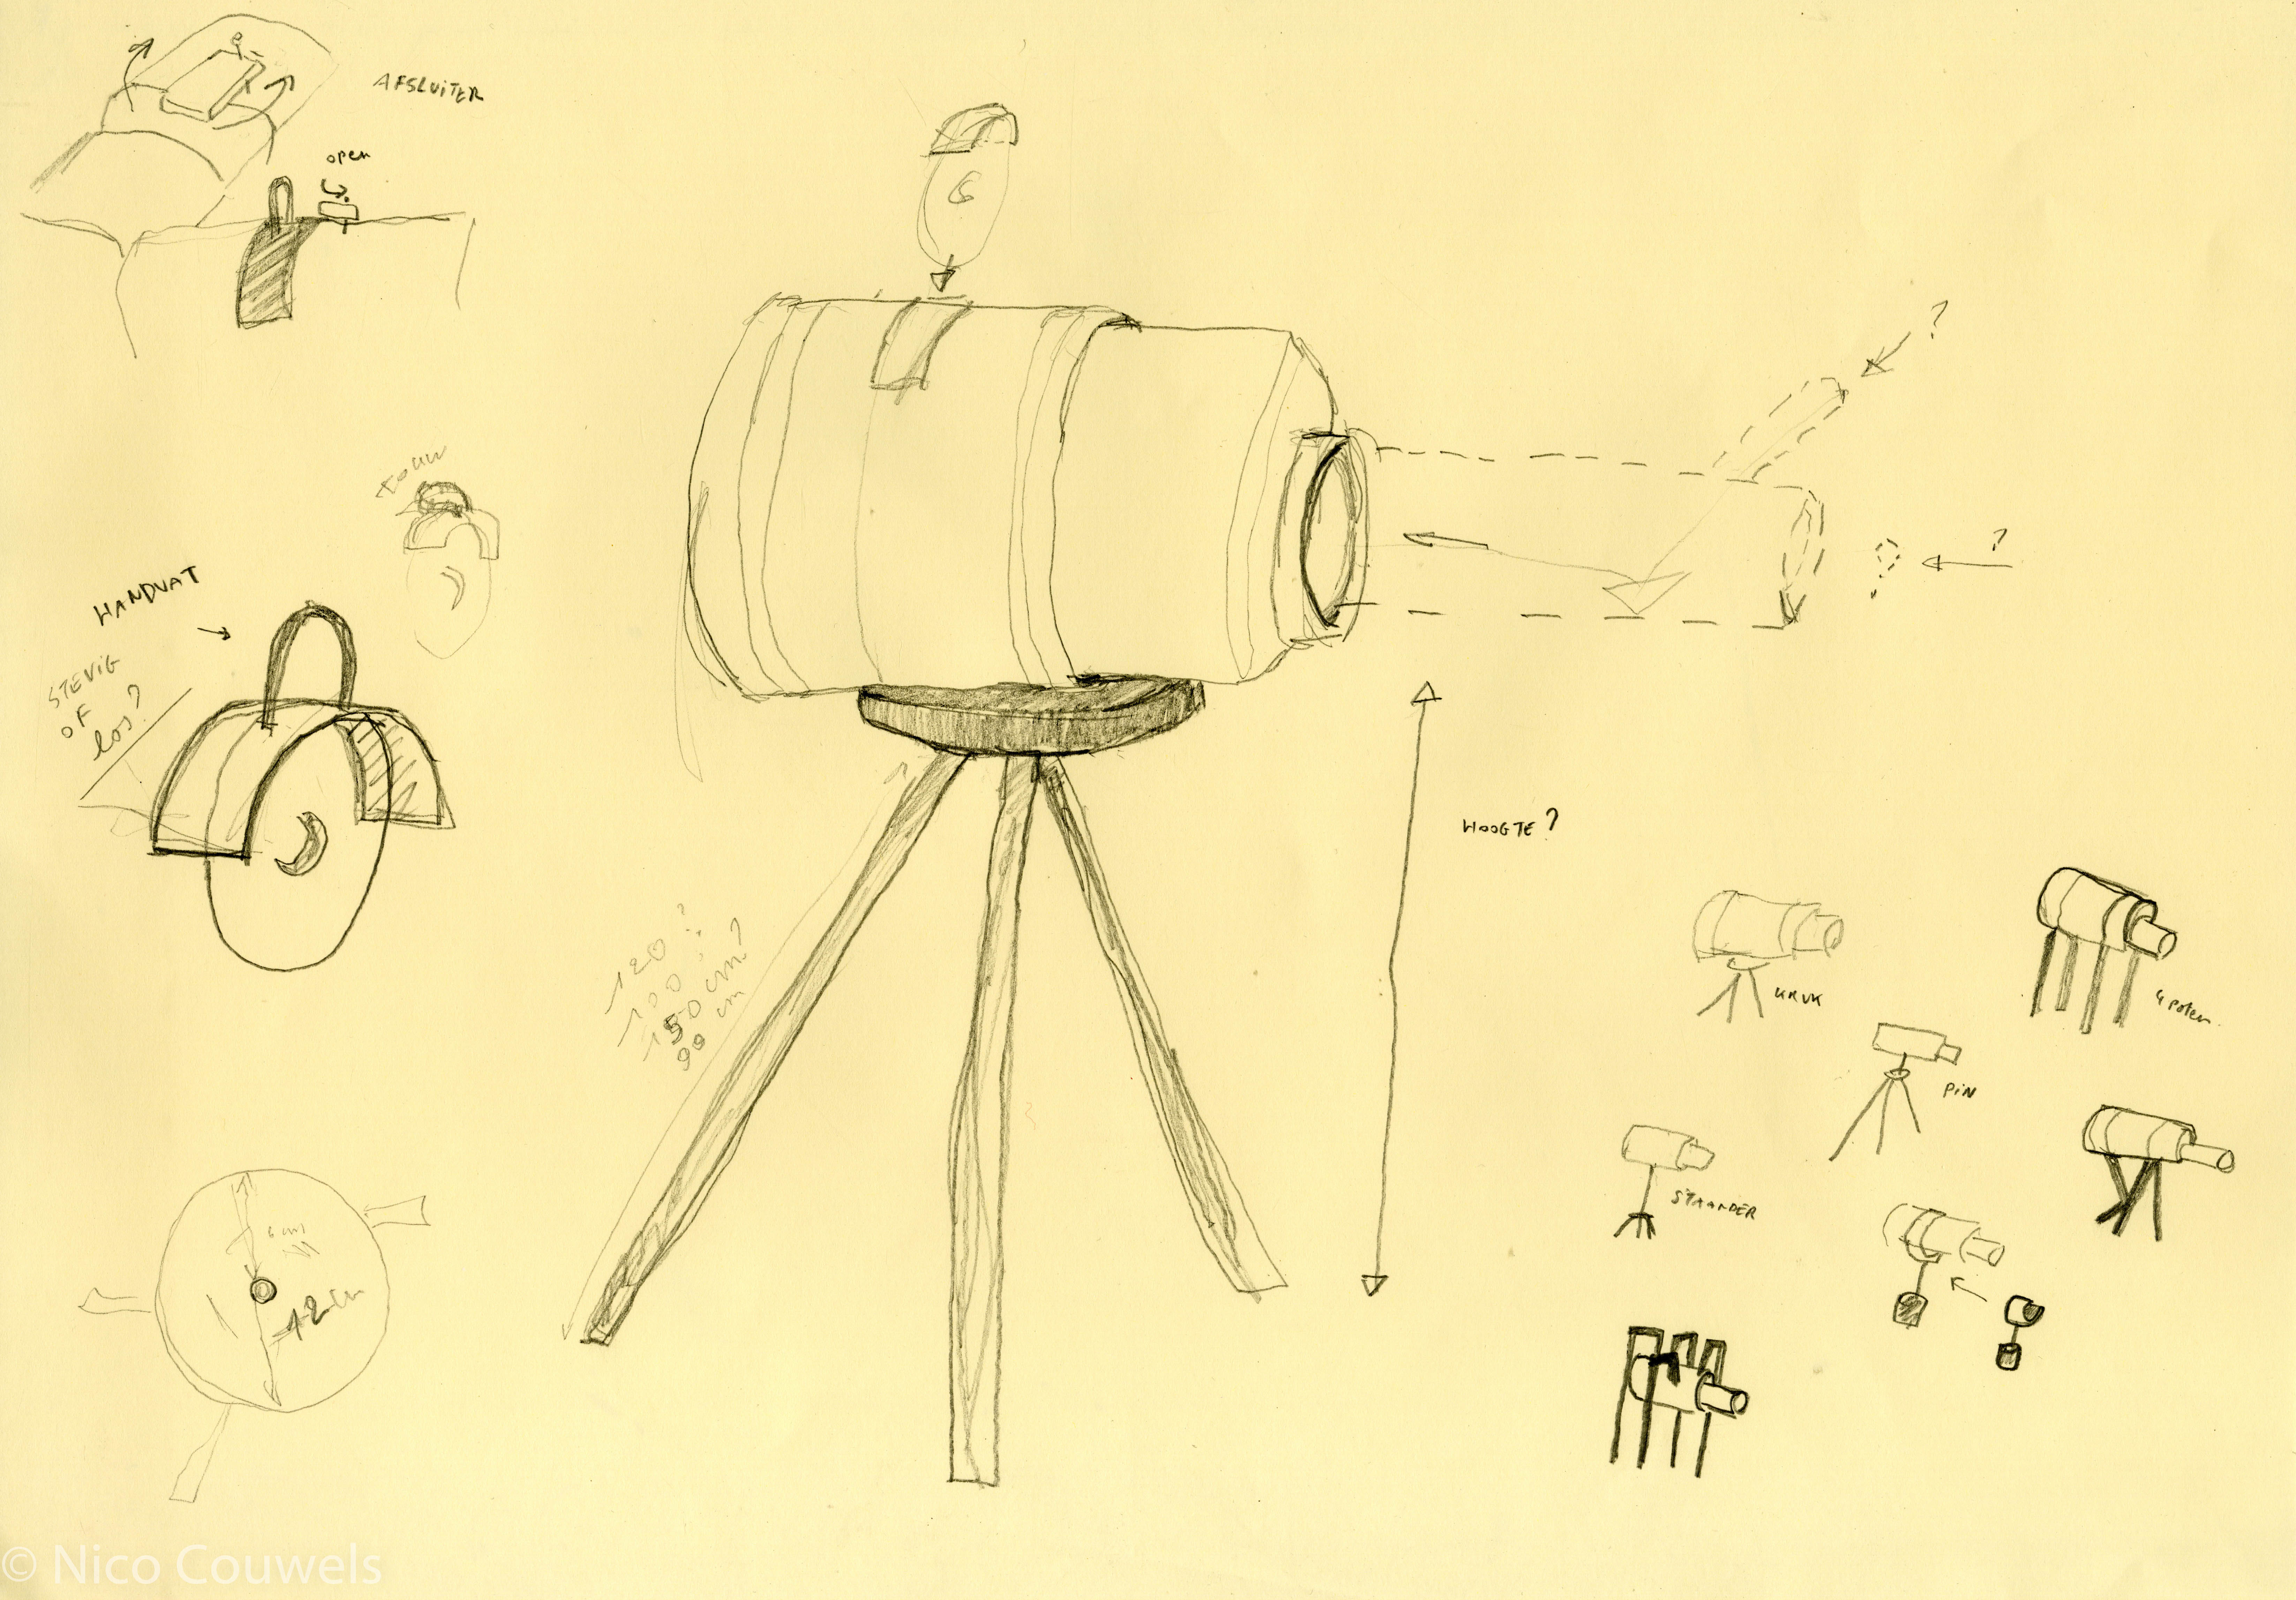 AFSLUITER
open
G
?
?
TOUW
HANDVAT
STEVIG
OF
los?
HOOGTE?
120 ?
100 ?
150 cm?
99 cm
KRUK
4 Polen
PIN
STAANDER
6 cm
12 cm
© Nico Couwels